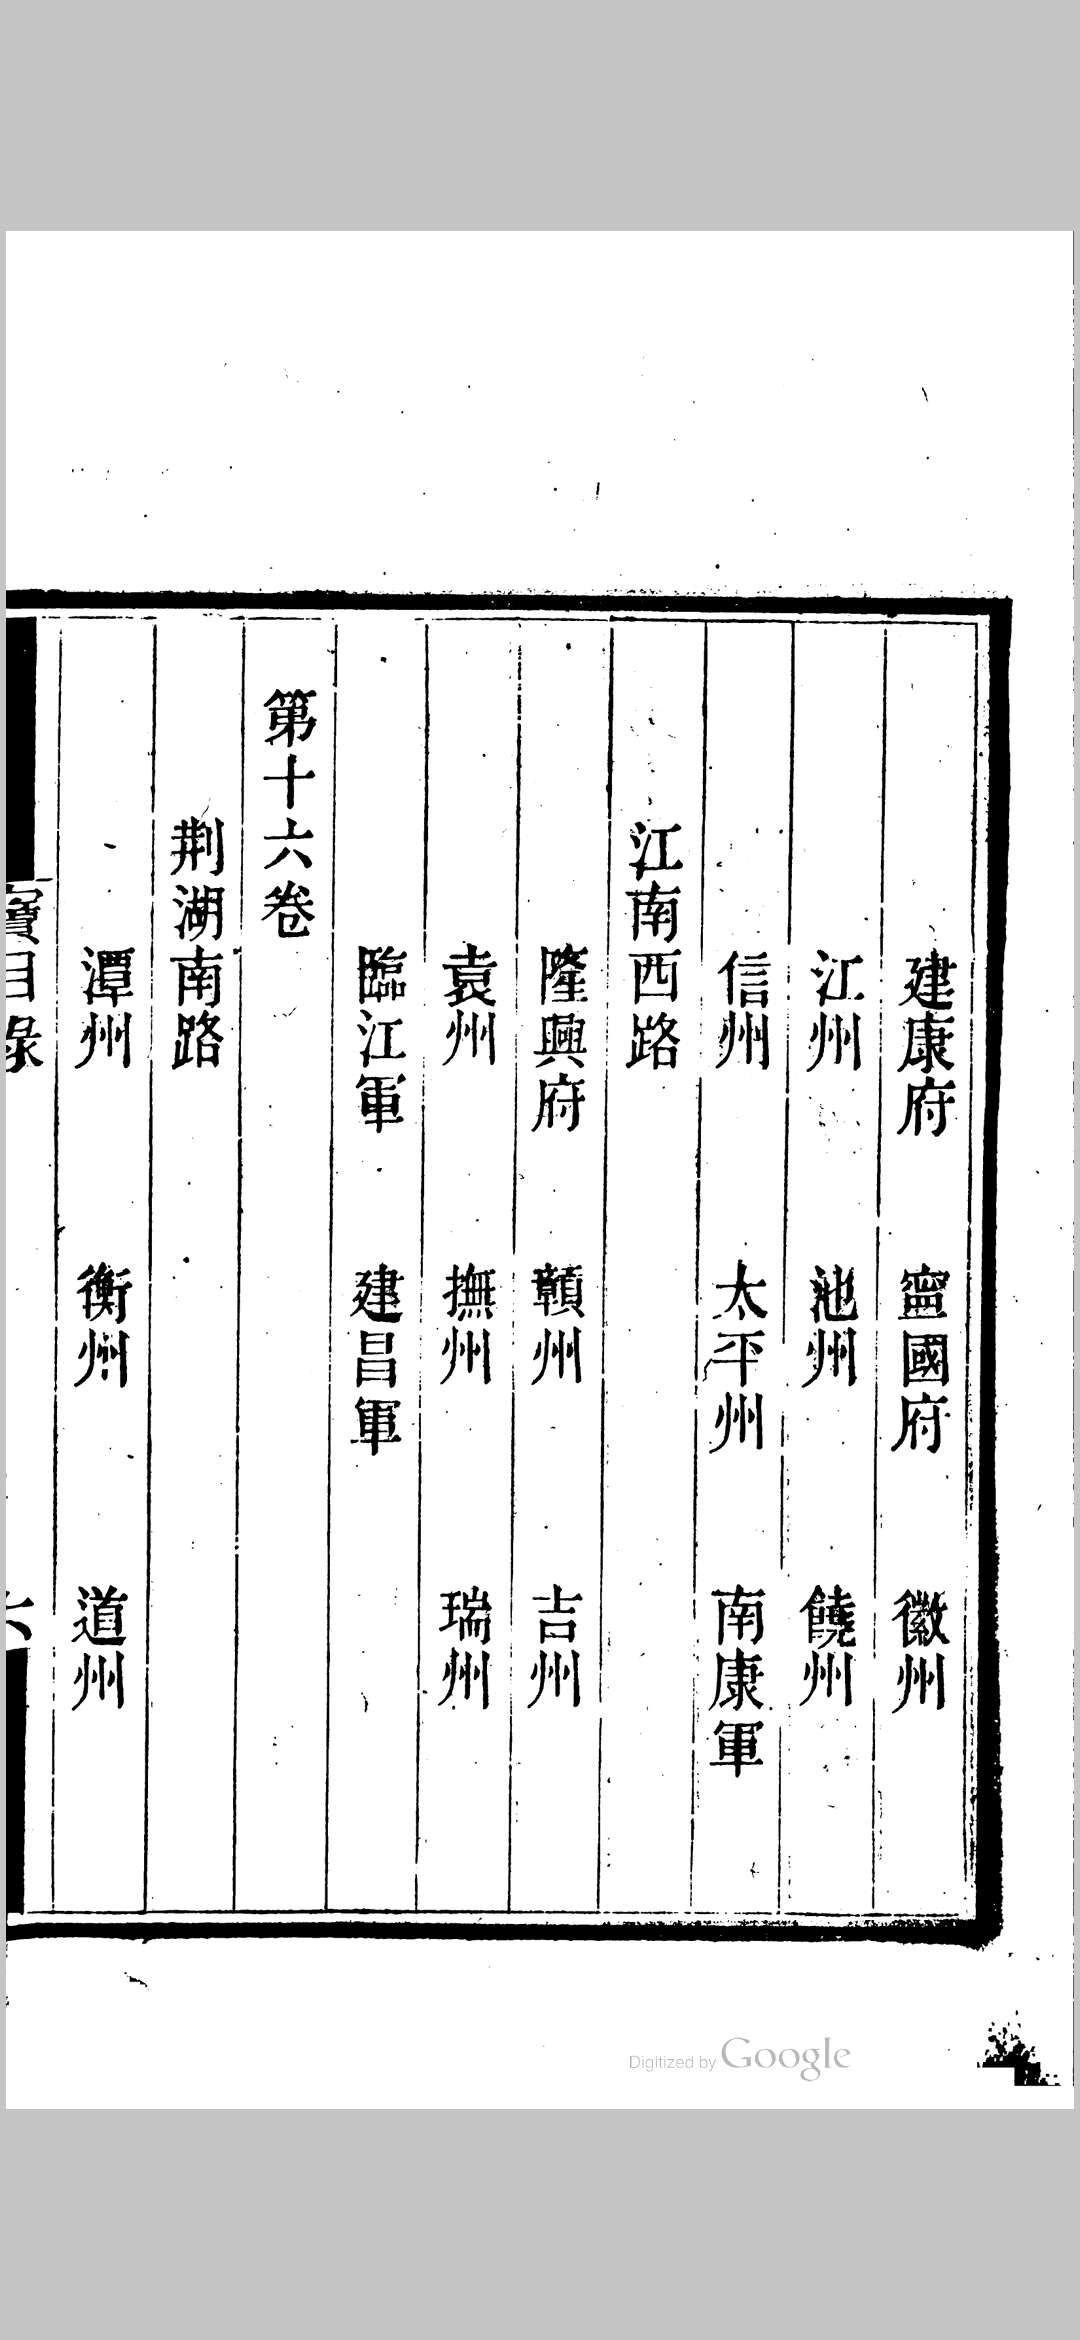 建康府 寧國府 徽州
江州 池州 饒州
信州 太平州 南康軍
江南西路
隆興府 贛州 吉州
袁州 撫州 瑞州
臨江軍 建昌軍
第十六卷
荆湖南路
潭州 衡州 道州
寶目錄 六
Digitized by Google